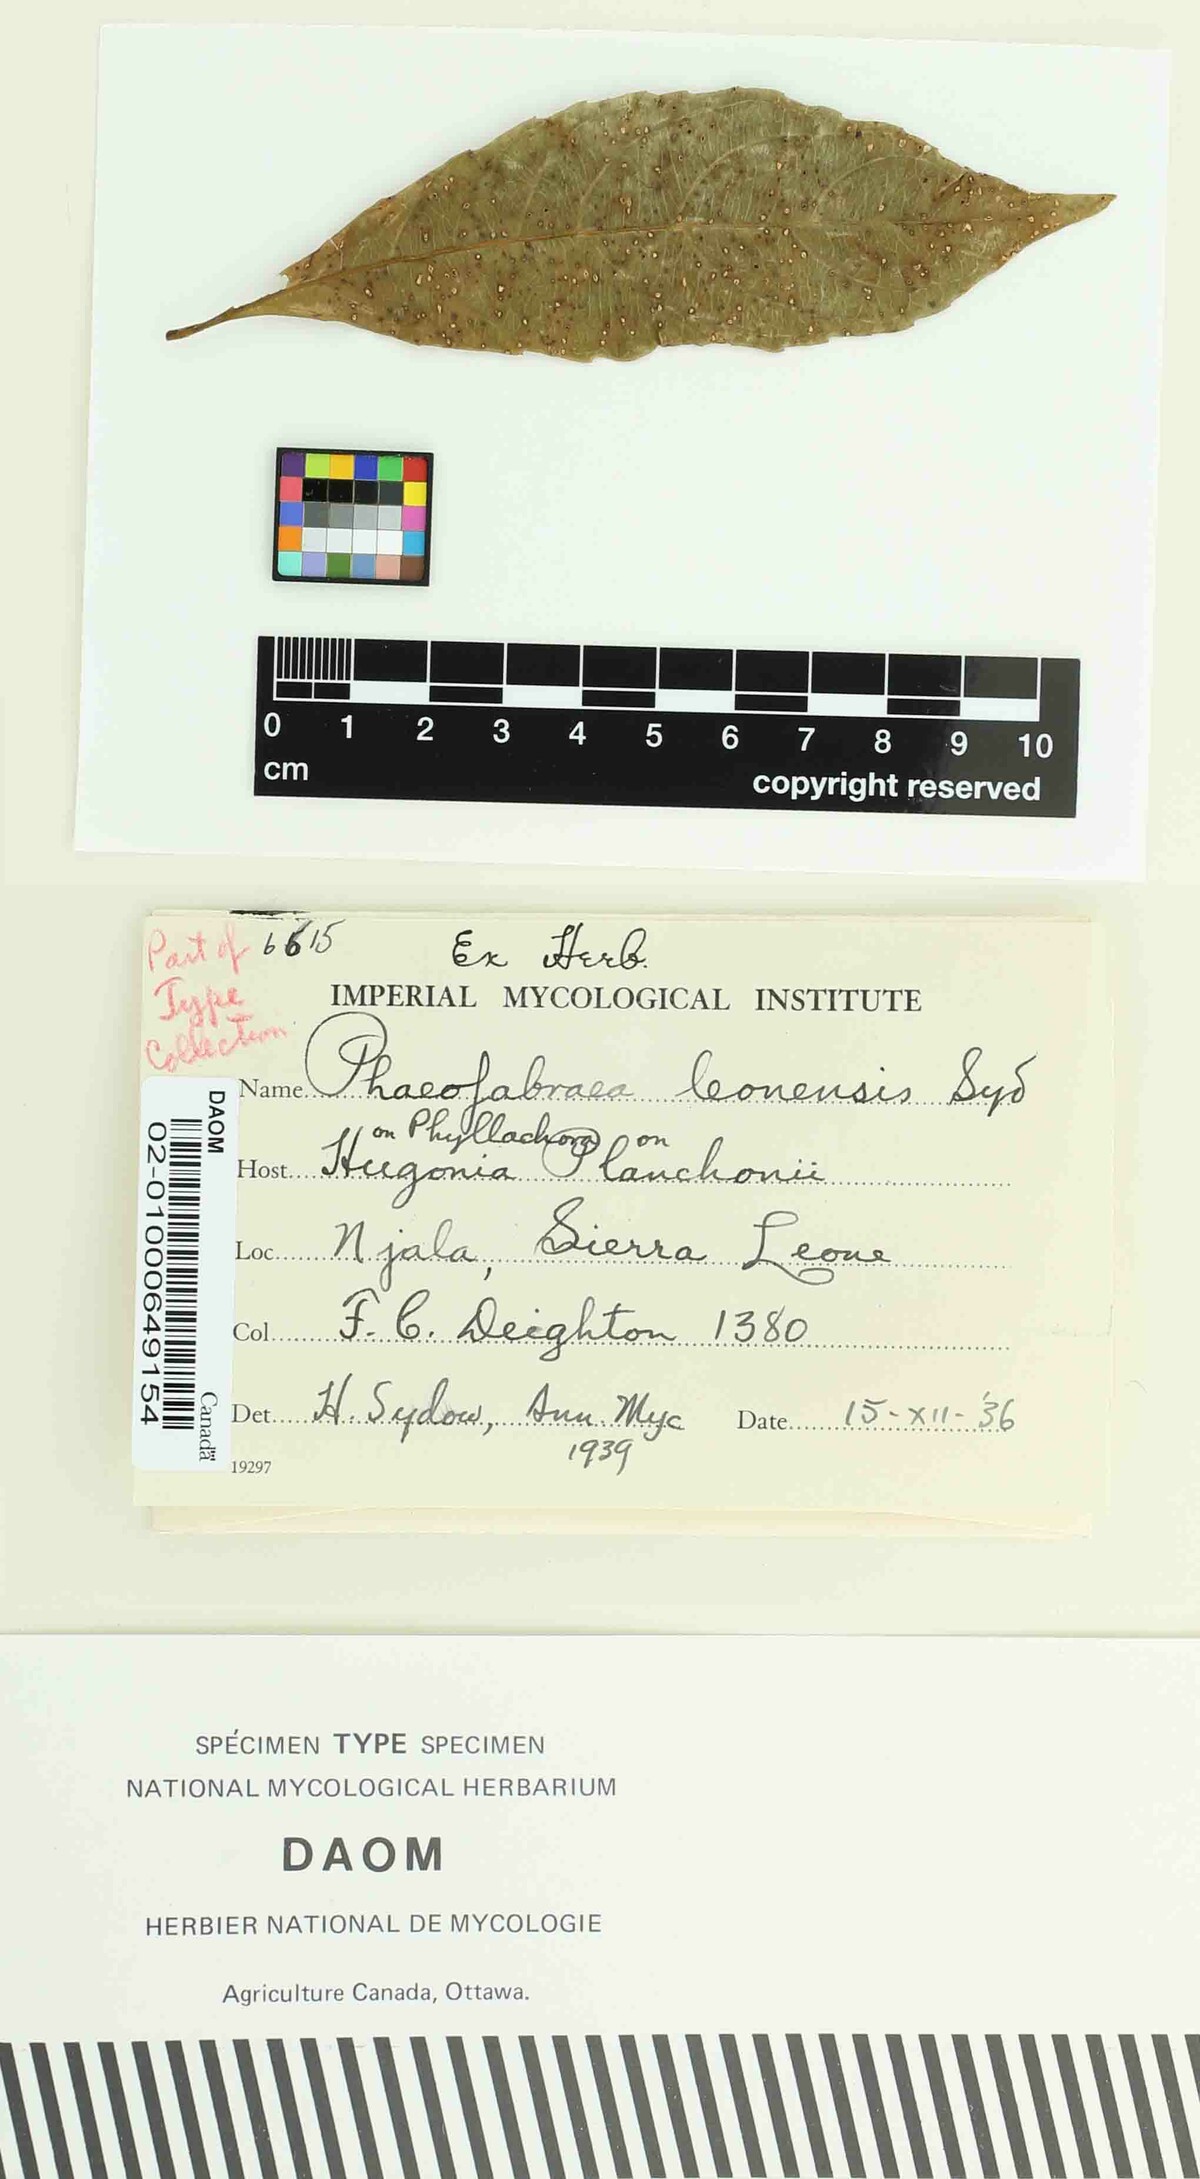 0 1 2 3 4 5 6 7 8 9 10
cm
copyright reserved
Part of
Type
Collection
6615
Ex Herb.
IMPERIAL MYCOLOGICAL INSTITUTE
Name Phaeofabraea leonensis Syd
on Phyllachora on
Host Hugonia Planchonii
Loc Njala, Sierra Leone
Col F. C. Deighton 1380
Det H. Sydow, Ann. Myc Date 15-XII-'36
1939
19297
DAOM
02-01000649154
Canada
SPÉCIMEN TYPE SPECIMEN
NATIONAL MYCOLOGICAL HERBARIUM
DAOM
HERBIER NATIONAL DE MYCOLOGIE
Agriculture Canada, Ottawa.